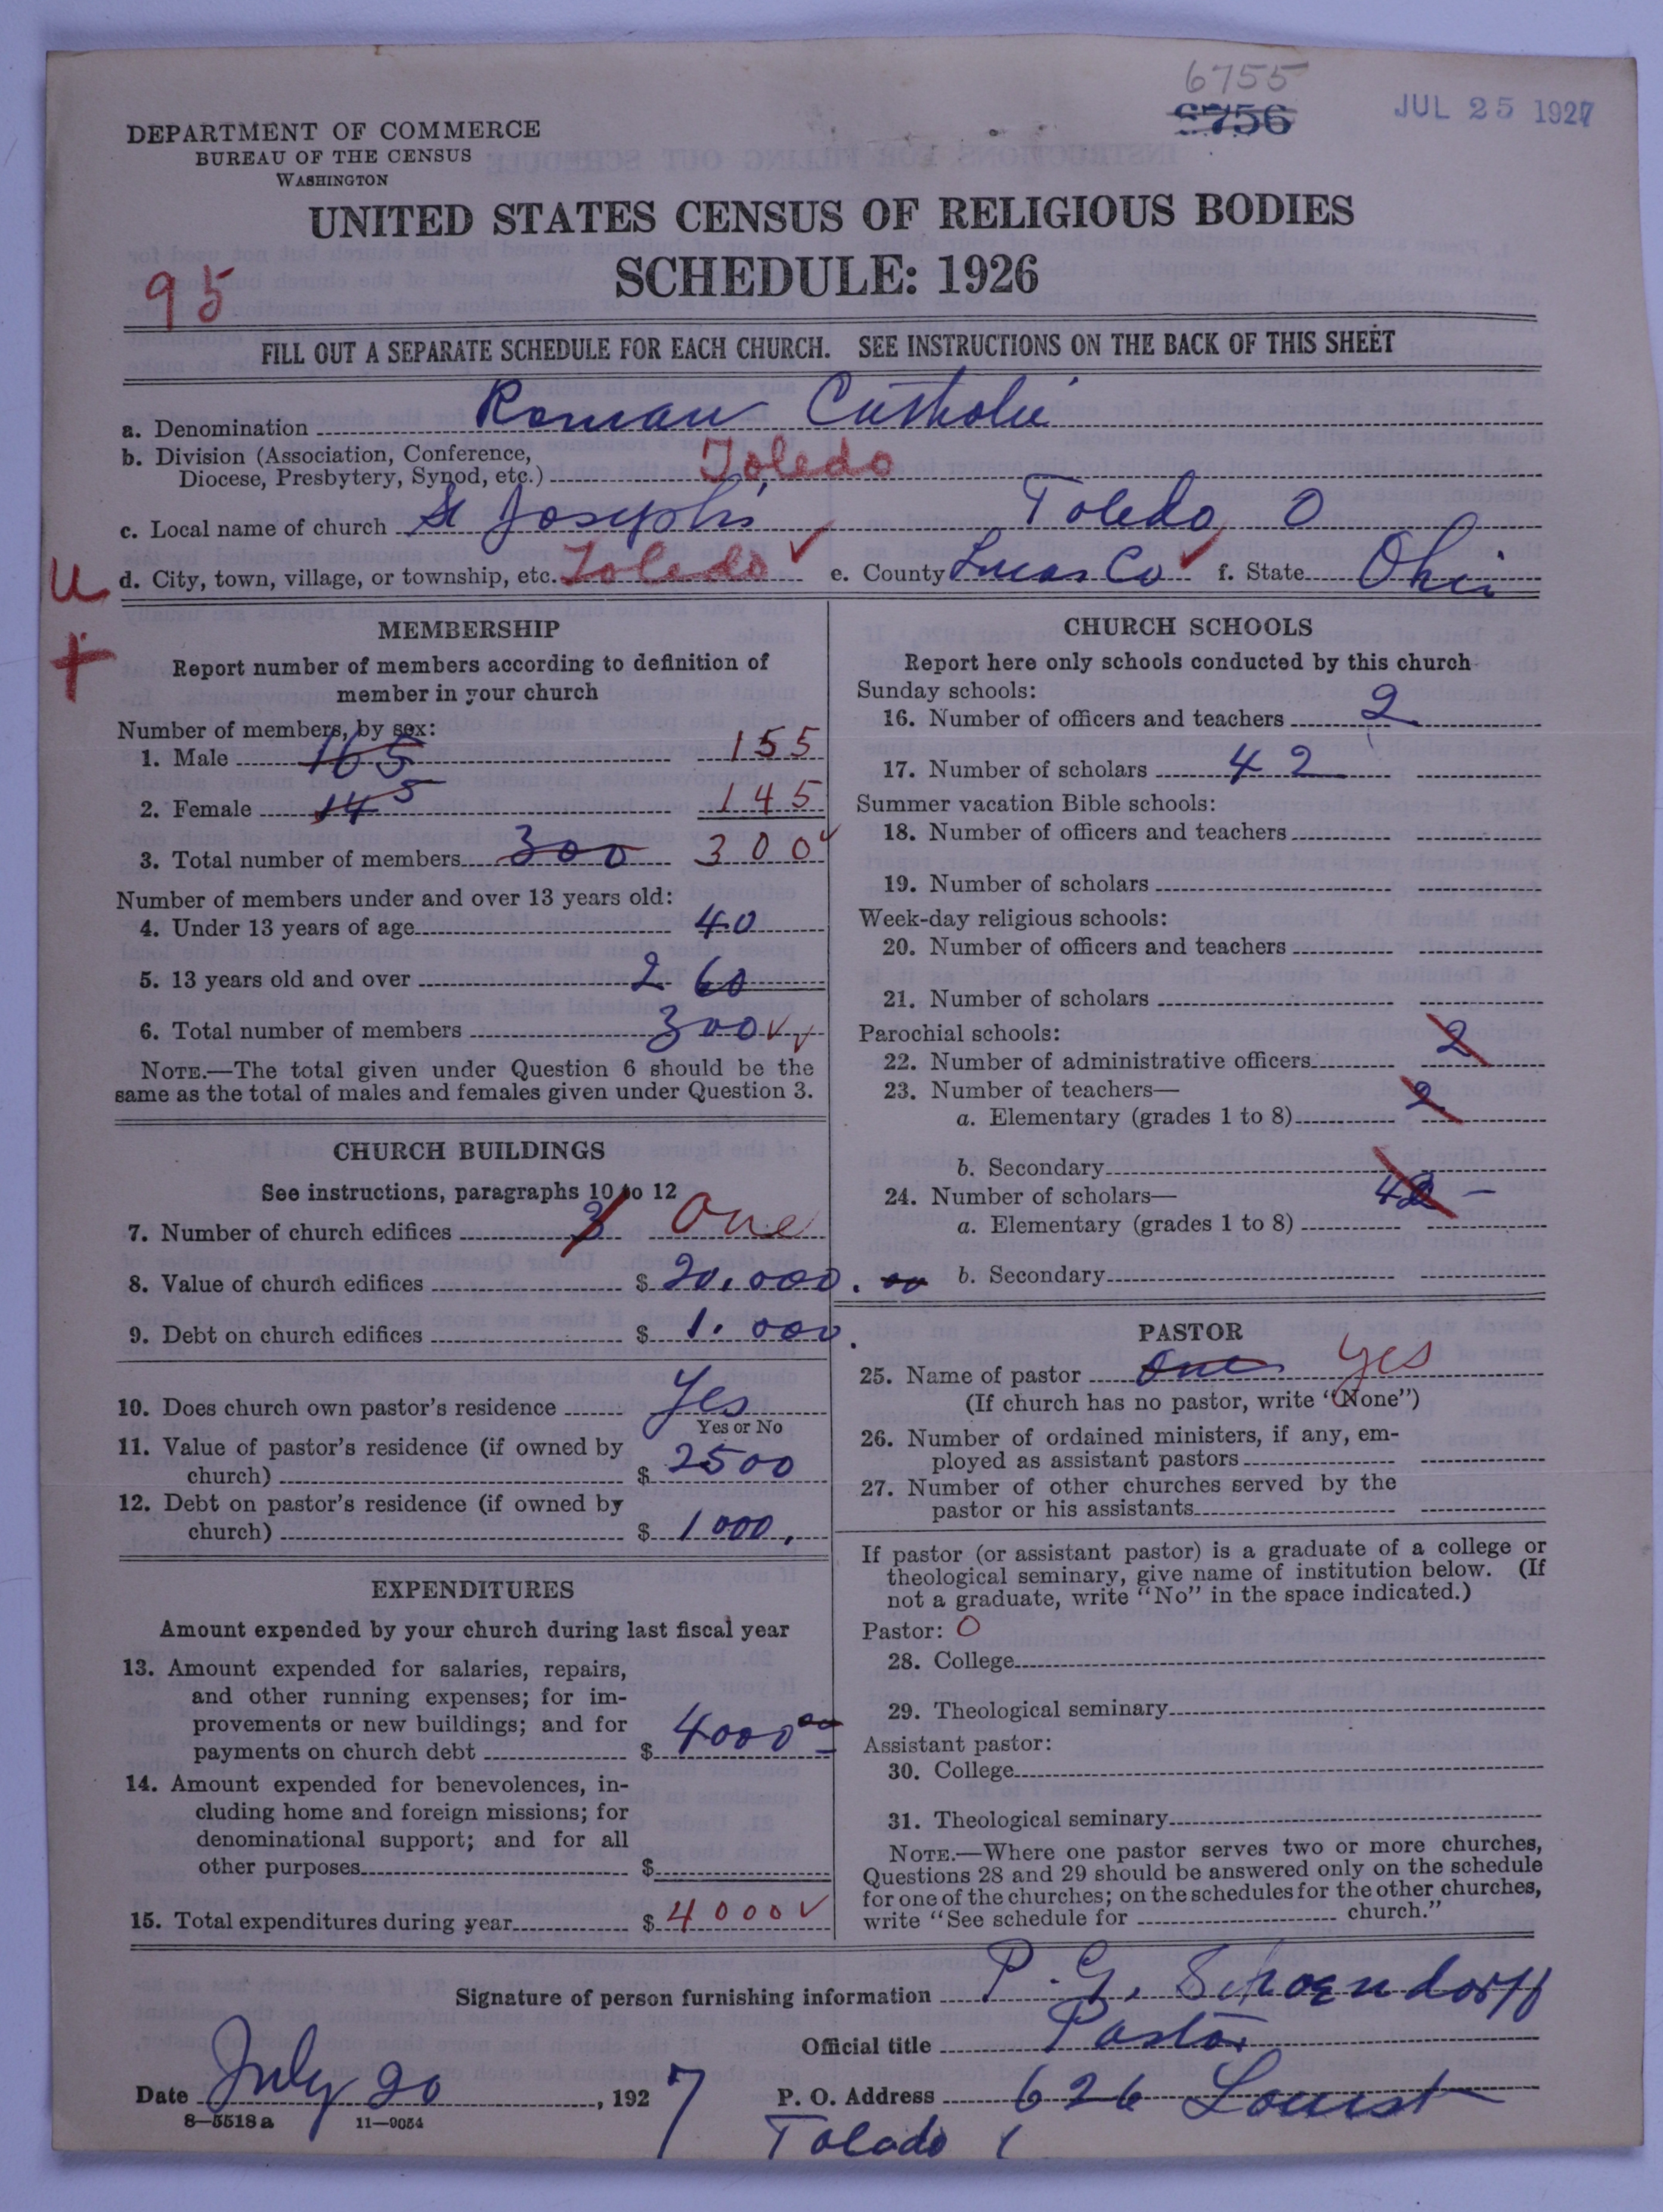 6755
8756
JUL 25 1927
DEPARTMENT OF COMMERCE
BUREAU OF THE CENSUS
WASHINGTON
UNITED STATES CENSUS OF RELIGIOUS BODIES
SCHEDULE: 1926
95
FILL OUT A SEPARATE SCHEDULE FOR EACH CHURCH. SEE INSTRUCTIONS ON THE BACK OF THIS SHEET
a. Denomination Roman Catholic
b. Division (Association, Conference,
Diocese, Presbytery, Synod, etc.) Toledo
c. Local name of church St Joseph's Toledo O
U d. City, town, village, or township, etc. Toledo ✓ e. County Lucas Co ✓ f. State Ohio
+
MEMBERSHIP
Report number of members according to definition of
member in your church
Number of members, by sex:
1. Male 165 155
2. Female 145 145
3. Total number of members 300 300 ✓
Number of members under and over 13 years old:
4. Under 13 years of age 40
5. 13 years old and over 260
6. Total number of members 300 ✓✓
NOTE.—The total given under Question 6 should be the
same as the total of males and females given under Question 3.
CHURCH BUILDINGS
See instructions, paragraphs 10 to 12
7. Number of church edifices 3 One
8. Value of church edifices $ 20,000.00
9. Debt on church edifices $ 1.000.
10. Does church own pastor's residence Yes
Yes or No
11. Value of pastor's residence (if owned by
church) $ 2500
12. Debt on pastor's residence (if owned by
church) $ 1000.
EXPENDITURES
Amount expended by your church during last fiscal year
13. Amount expended for salaries, repairs,
and other running expenses; for im-
provements or new buildings; and for
payments on church debt $ 4000 00
14. Amount expended for benevolences, in-
cluding home and foreign missions; for
denominational support; and for all
other purposes $
15. Total expenditures during year $ 4000 ✓
CHURCH SCHOOLS
Report here only schools conducted by this church
Sunday schools:
16. Number of officers and teachers 2
17. Number of scholars 42
Summer vacation Bible schools:
18. Number of officers and teachers
19. Number of scholars
Week-day religious schools:
20. Number of officers and teachers
21. Number of scholars
Parochial schools:
22. Number of administrative officers 2
23. Number of teachers—
a. Elementary (grades 1 to 8) 2
b. Secondary
24. Number of scholars— 42 –
a. Elementary (grades 1 to 8)
b. Secondary
PASTOR
25. Name of pastor One yes
(If church has no pastor, write "None")
26. Number of ordained ministers, if any, em-
ployed as assistant pastors
27. Number of other churches served by the
pastor or his assistants
If pastor (or assistant pastor) is a graduate of a college or
theological seminary, give name of institution below. (If
not a graduate, write "No" in the space indicated.)
Pastor: O
28. College
29. Theological seminary
Assistant pastor:
30. College
31. Theological seminary
NOTE.—Where one pastor serves two or more churches,
Questions 28 and 29 should be answered only on the schedule
for one of the churches; on the schedules for the other churches,
write "See schedule for church."
Signature of person furnishing information P. G. Schoendorff
Official title Pastor
Date July 20, 1927 P. O. Address 626 Locust
8—5518 a 11—9054
Toledo